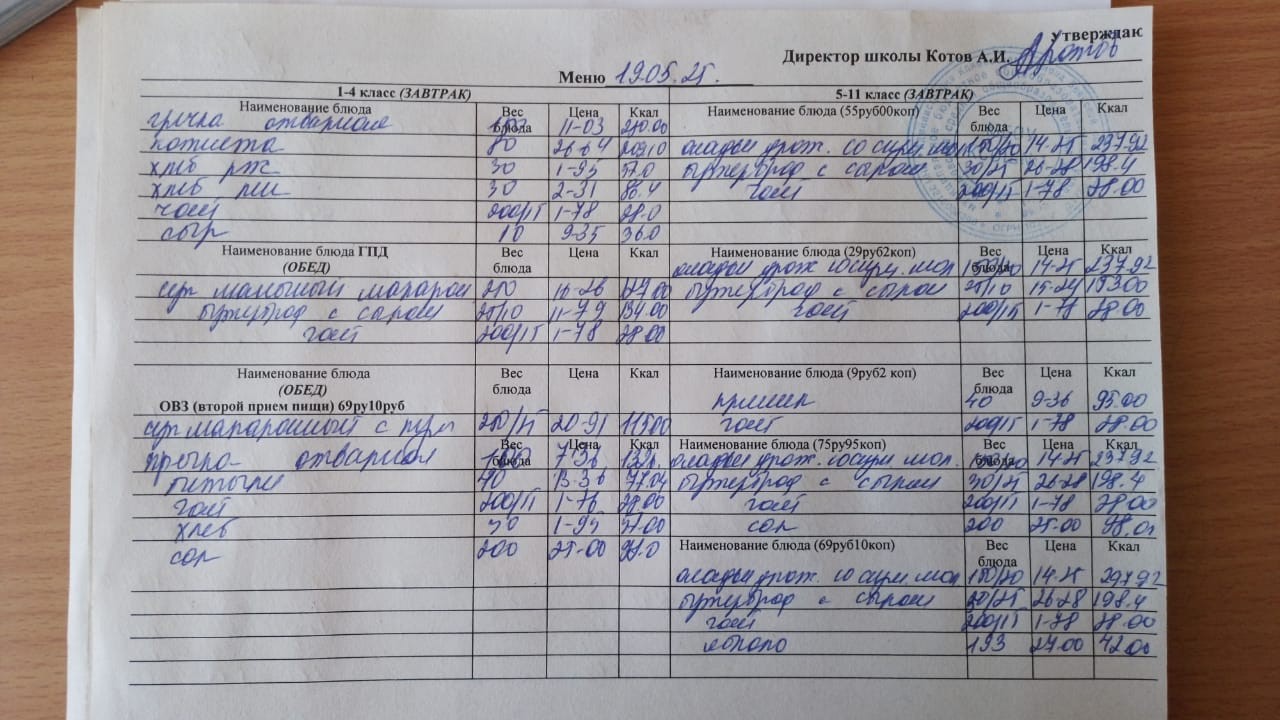 Утверждаю
Директор школы Котов А.И.
Меню 19.05.25.
1-4 класс (ЗАВТРАК)
Наименование блюда Вес блюда Цена Ккал
гречка отварная 11-03
котлета 80 26-64
хлеб рж 30 1-95
хлеб пш 30 2-31 86.4
чай 200/15 1-78 28.0
сыр 10 9-35 36.0
Наименование блюда ГПД (ОБЕД) Вес блюда Цена Ккал
суп молочный макарон 250
бутерброд с сыром 25/10 11-79 134.00
чай 200/15 1-78 28.00
Наименование блюда (ОБЕД) Вес блюда Цена Ккал
ОВЗ (второй прием пищи) 69ру10руб
суп макаронный с 250/15 20-91 115.00
гречка отварная 100 7-36
40 13-36 77.04
чай 200/15 28.00
хлеб 30 1-95
сок 200 25-00
5-11 класс (ЗАВТРАК)
Наименование блюда (55руб00коп) Вес блюда Цена Ккал
оладьи дрож. со сгущ мол 150/20 14-25 237.92
бутерброд с сыром 30/25 26-28 198.4
чай 200/15 1-78 28.00
Наименование блюда (29руб2коп) Вес блюда Цена Ккал
оладьи дрож со сгущ. мол 150/20 14-25 237.92
бутерброд с сыром 25/10 15-24 153.00
чай 200/15 1-78 28.00
Наименование блюда (9руб2 коп) Вес блюда Цена Ккал
40 9-36 95.00
чай 200/15 1-78 28.00
Наименование блюда (75ру95коп) Вес блюда Цена Ккал
оладьи дрож. со сгущ. мол. 14-25 237.92
бутерброд с сыром 30/25 26-28 198.4
чай 200/15 1-78 28.00
сок 200 25-00
Наименование блюда (69руб10коп) Вес блюда Цена Ккал
оладьи дрож. со сгущ. мол 150/20 14-25
бутерброд с сыром 26-28 198.4
чай 200/15 1-78 28.00
яблоко 193 27-00 42.00